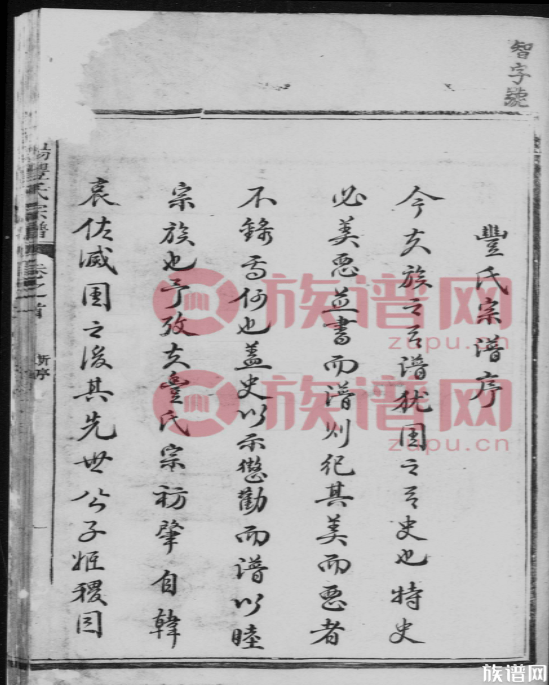 智字號
豐氏宗譜序
今夫族之有譜猶国之有史也特史
必美惡並書而譜則紀其美而惡者
不錄焉何也盖史以示懲勸而譜以睦
宗族也予攷夫豐氏宗祊肇自韓
哀佐滅国之後其先世公子姬稷因
豐氏宗譜
卷之首
新序
族谱网
zupu.cn
族谱网
zupu.cn
族谱网
zupu.cn